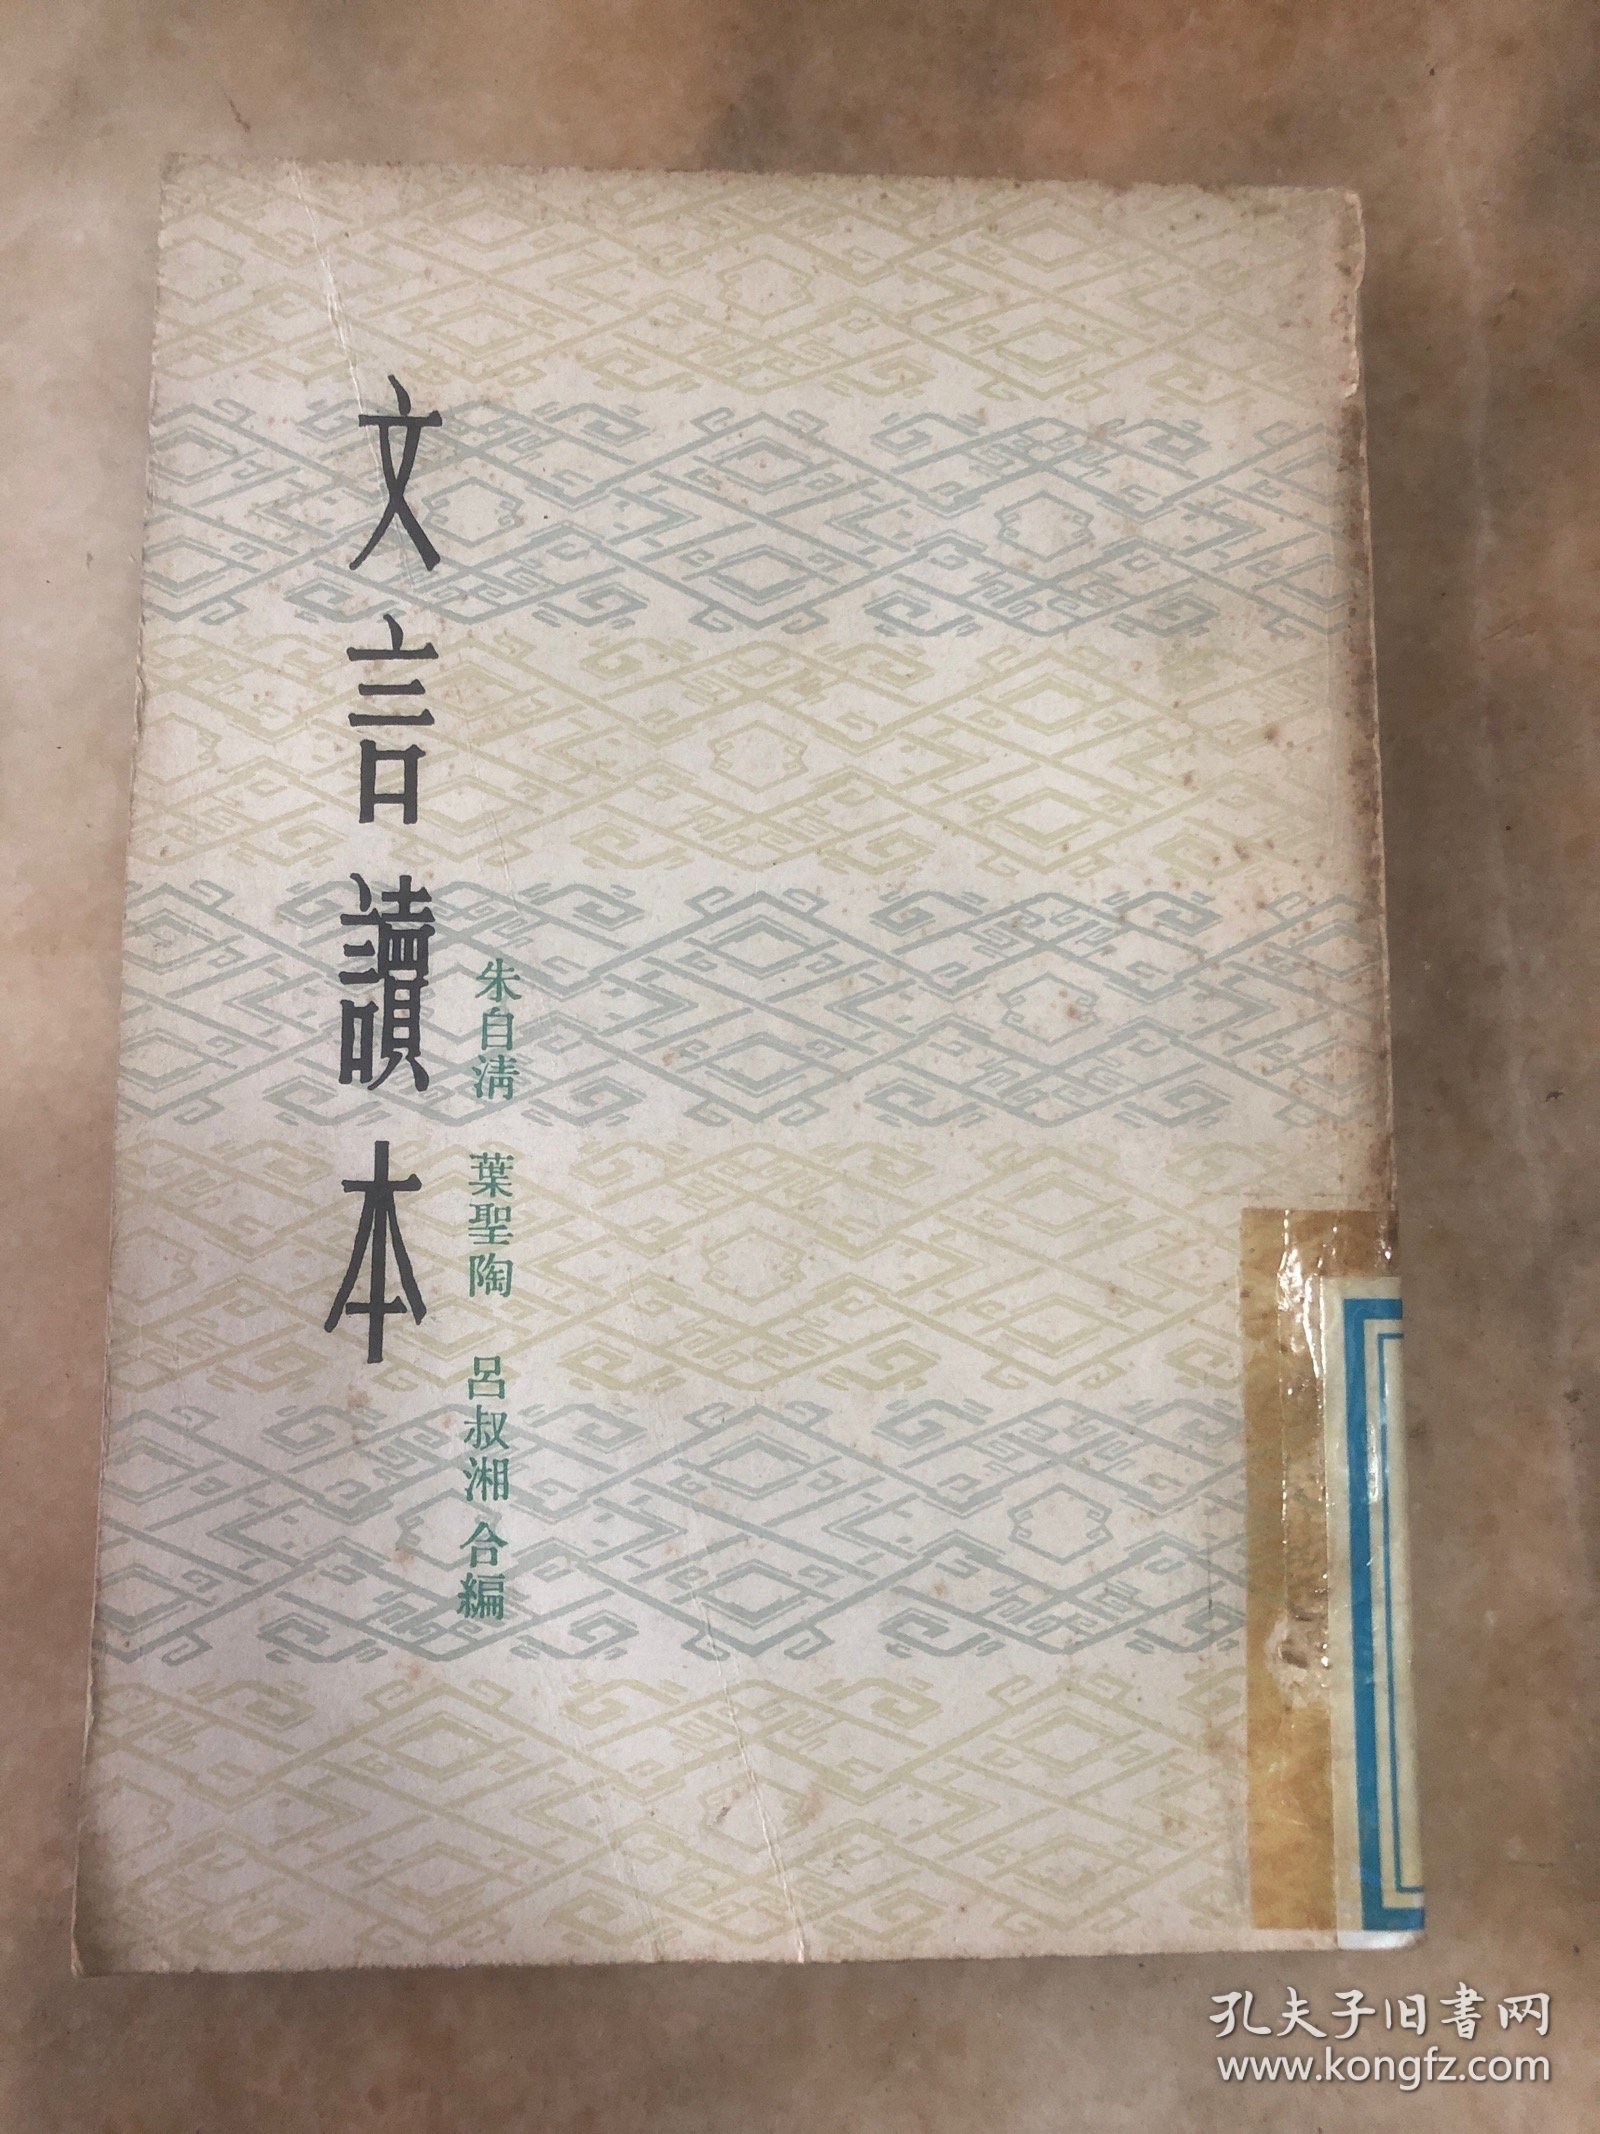 文言讀本
朱自清 葉聖陶 呂叔湘 合編
孔夫子旧書网
www.kongfz.com